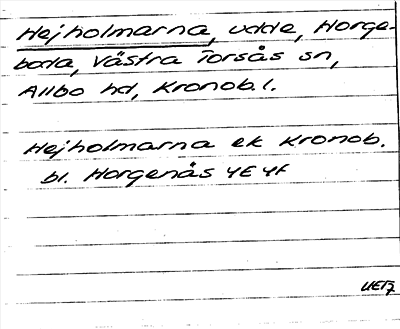 Hejholmarna, udde, Horge-
boda, Västra Torsås sn,
Allbo hd, Kronob. l.
Hejholmarna ek Kronob.
bl. Horgenås 4E 4f